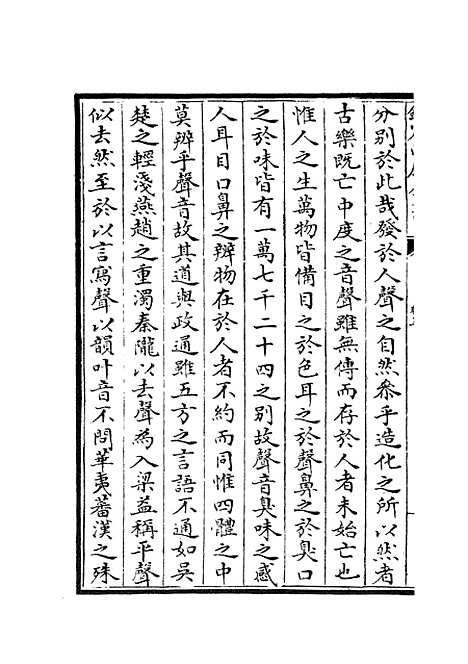 分别於此哉發於人聲之自然叅乎造化之所以然者
古樂既亡中度之音聲雖無傳而存於人者未始亡也
惟人之生萬物皆備目之於色耳之於聲鼻之於臭口
之於味皆有一萬七千二十四之别故聲音臭味之感
人耳目口鼻之辨物在於人者不約而同惟四體之中
莫辨乎聲音故其道與政通雖五方之言語不通如吳
楚之輕淺燕趙之重濁秦隴以去聲為入梁益稱平聲
似去然至於以言寫聲以韻叶音不問華夷蕃漢之殊